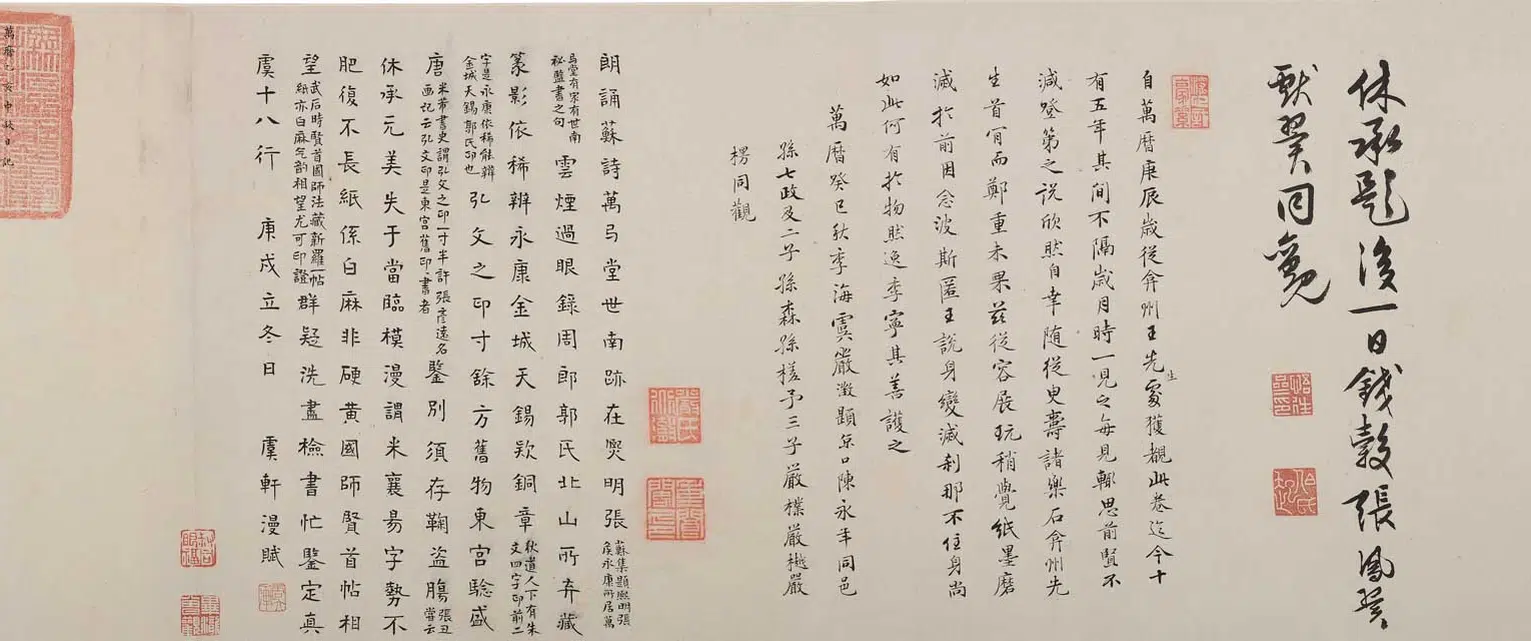 休承題後一日錢穀張鳳翼
獻翼同觀
自萬曆庚辰歲從弇州王先生處獲覩此卷迄今十
有五年其間不隔歲月時一見之每見輒思前賢不
減登第之說欣然自幸隨從曳壽諸樂石弇州先
生首肎而鄭重未果茲從容展玩稍覺紙墨磨
滅於前因念波斯匿王說身變滅刹那不住身尚
如此何有於物然逸季寧其善護之
萬曆癸巳秋季海虞嚴澂題京口陳永年同邑
孫七政及二子孫森孫槎予三子嚴檏嚴樾嚴
楞同觀
朗誦蘇詩萬弓堂世南跡在煚明張蘇集題煚明張
矦永康所居萬
弓堂有家有世南
秘監書之句雲煙過眼錄周郎郭氏北山所弃藏
篆影依稀辨永康金城天錫欵銅章秋遣人下有朱
文四字印前二
字是永康依稀能辨
金城天錫郭氏印也弘文之印寸餘方舊物東宮騐盛
唐米芾書史謂弘文之印一寸半許張彥遠名
画記云弘文印是東宮舊印書者鑒別須存鞠盗膓張丑
嘗云
休承元美失于當臨模漫謂米襄昜字勢不
肥復不長紙係白麻非硬黃國師賢首帖相
望武后時賢首國師法藏新羅一帖
紙亦白麻气韵相望尤可印證群疑洗盡檢書忙鑒定真
虞十八行　庚戌立冬日　虞軒漫賦
萬曆乙亥中秋日記